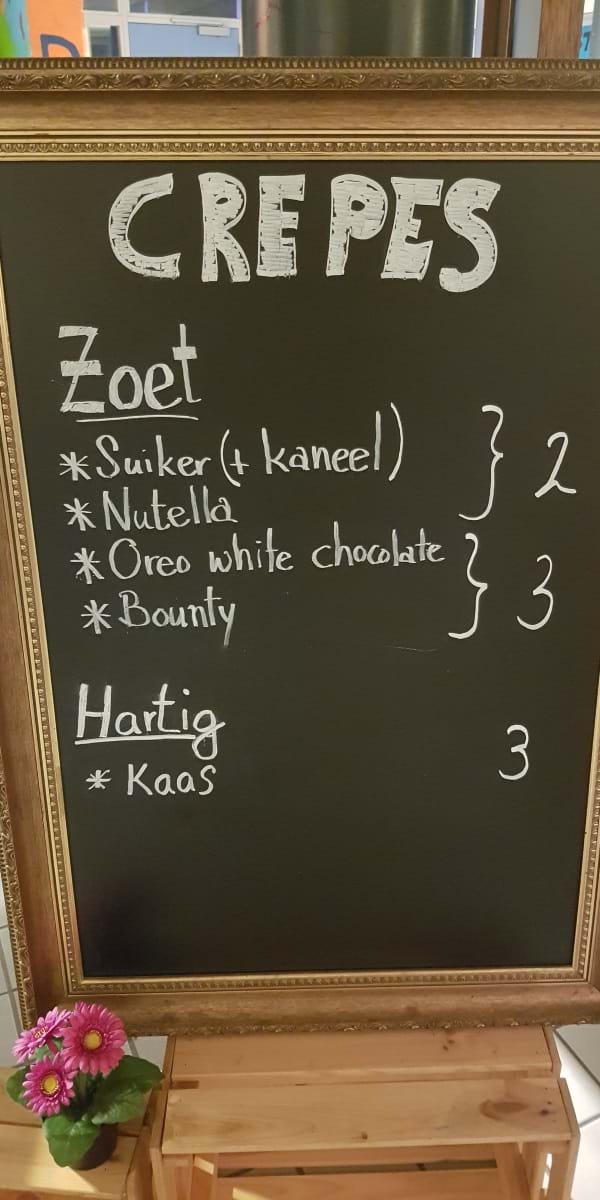 CREPES
Zoet
* Suiker (+ kaneel) } 2
* Nutella
* Oreo white chocolate } 3
* Bounty
Hartig
3
* Kaas